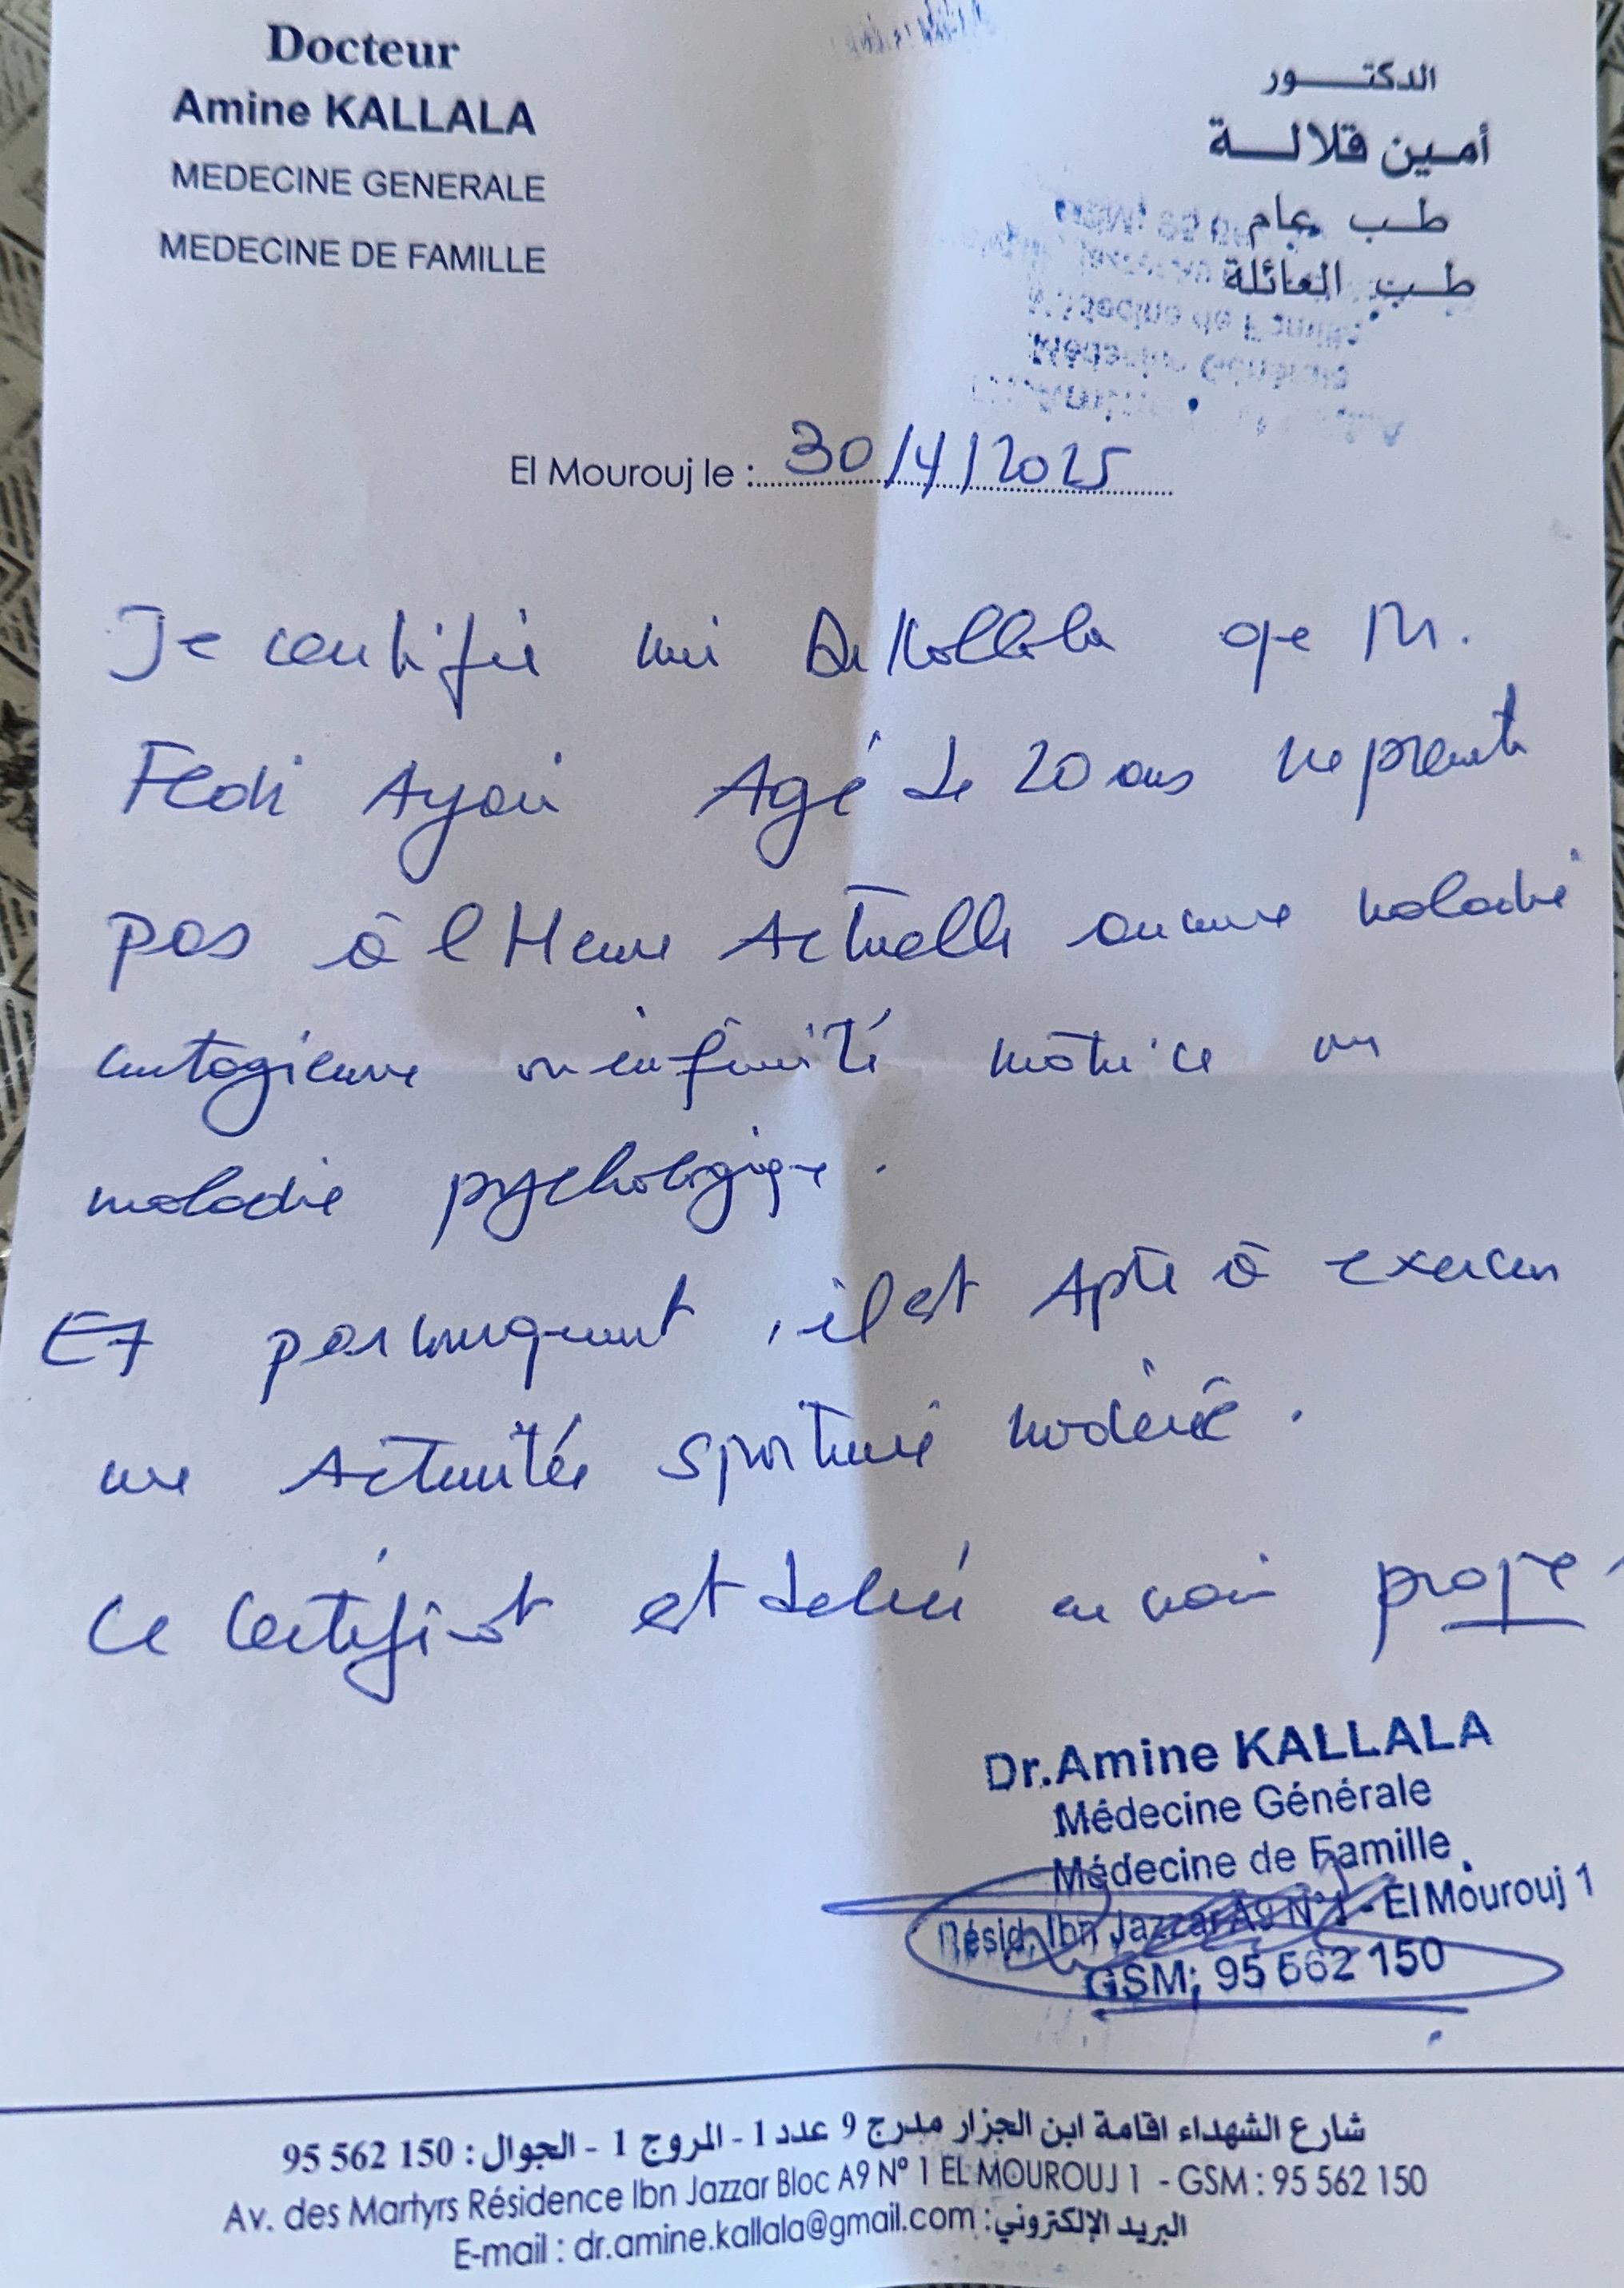 Docteur
Amine KALLALA
MEDECINE GENERALE
MEDECINE DE FAMILLE
الدكتـــور
أمـين قلالـــة
طـب عام
طـب العائلة
El Mourouj le : 30/4/2025
Je certifie moi Dr Kallala que M.
Fedi Ayari Agé de 20 ans ne présente
pas à l'Heure Actuelle aucune maladie
contagieuse ou infirmité motrice ou
maladie psychologique.
Et par conséquent, il est Apte à exercer
une Activitée sportive modéré.
Ce certificat est délivré en main propre
Dr.Amine KALLALA
Médecine Générale
Médecine de Famille
Résid. Ibn Jazzar A9 N°1 - El Mourouj 1
GSM: 95 562 150
شارع الشهداء اقامة ابن الجزار مدرج 9 عدد 1 - المروج 1 - الجوال : 150 562 95
Av. des Martyrs Résidence Ibn Jazzar Bloc A9 N° 1 EL MOUROUJ 1 - GSM : 95 562 150
E-mail : dr.amine.kallala@gmail.com :البريد الإلكتروني